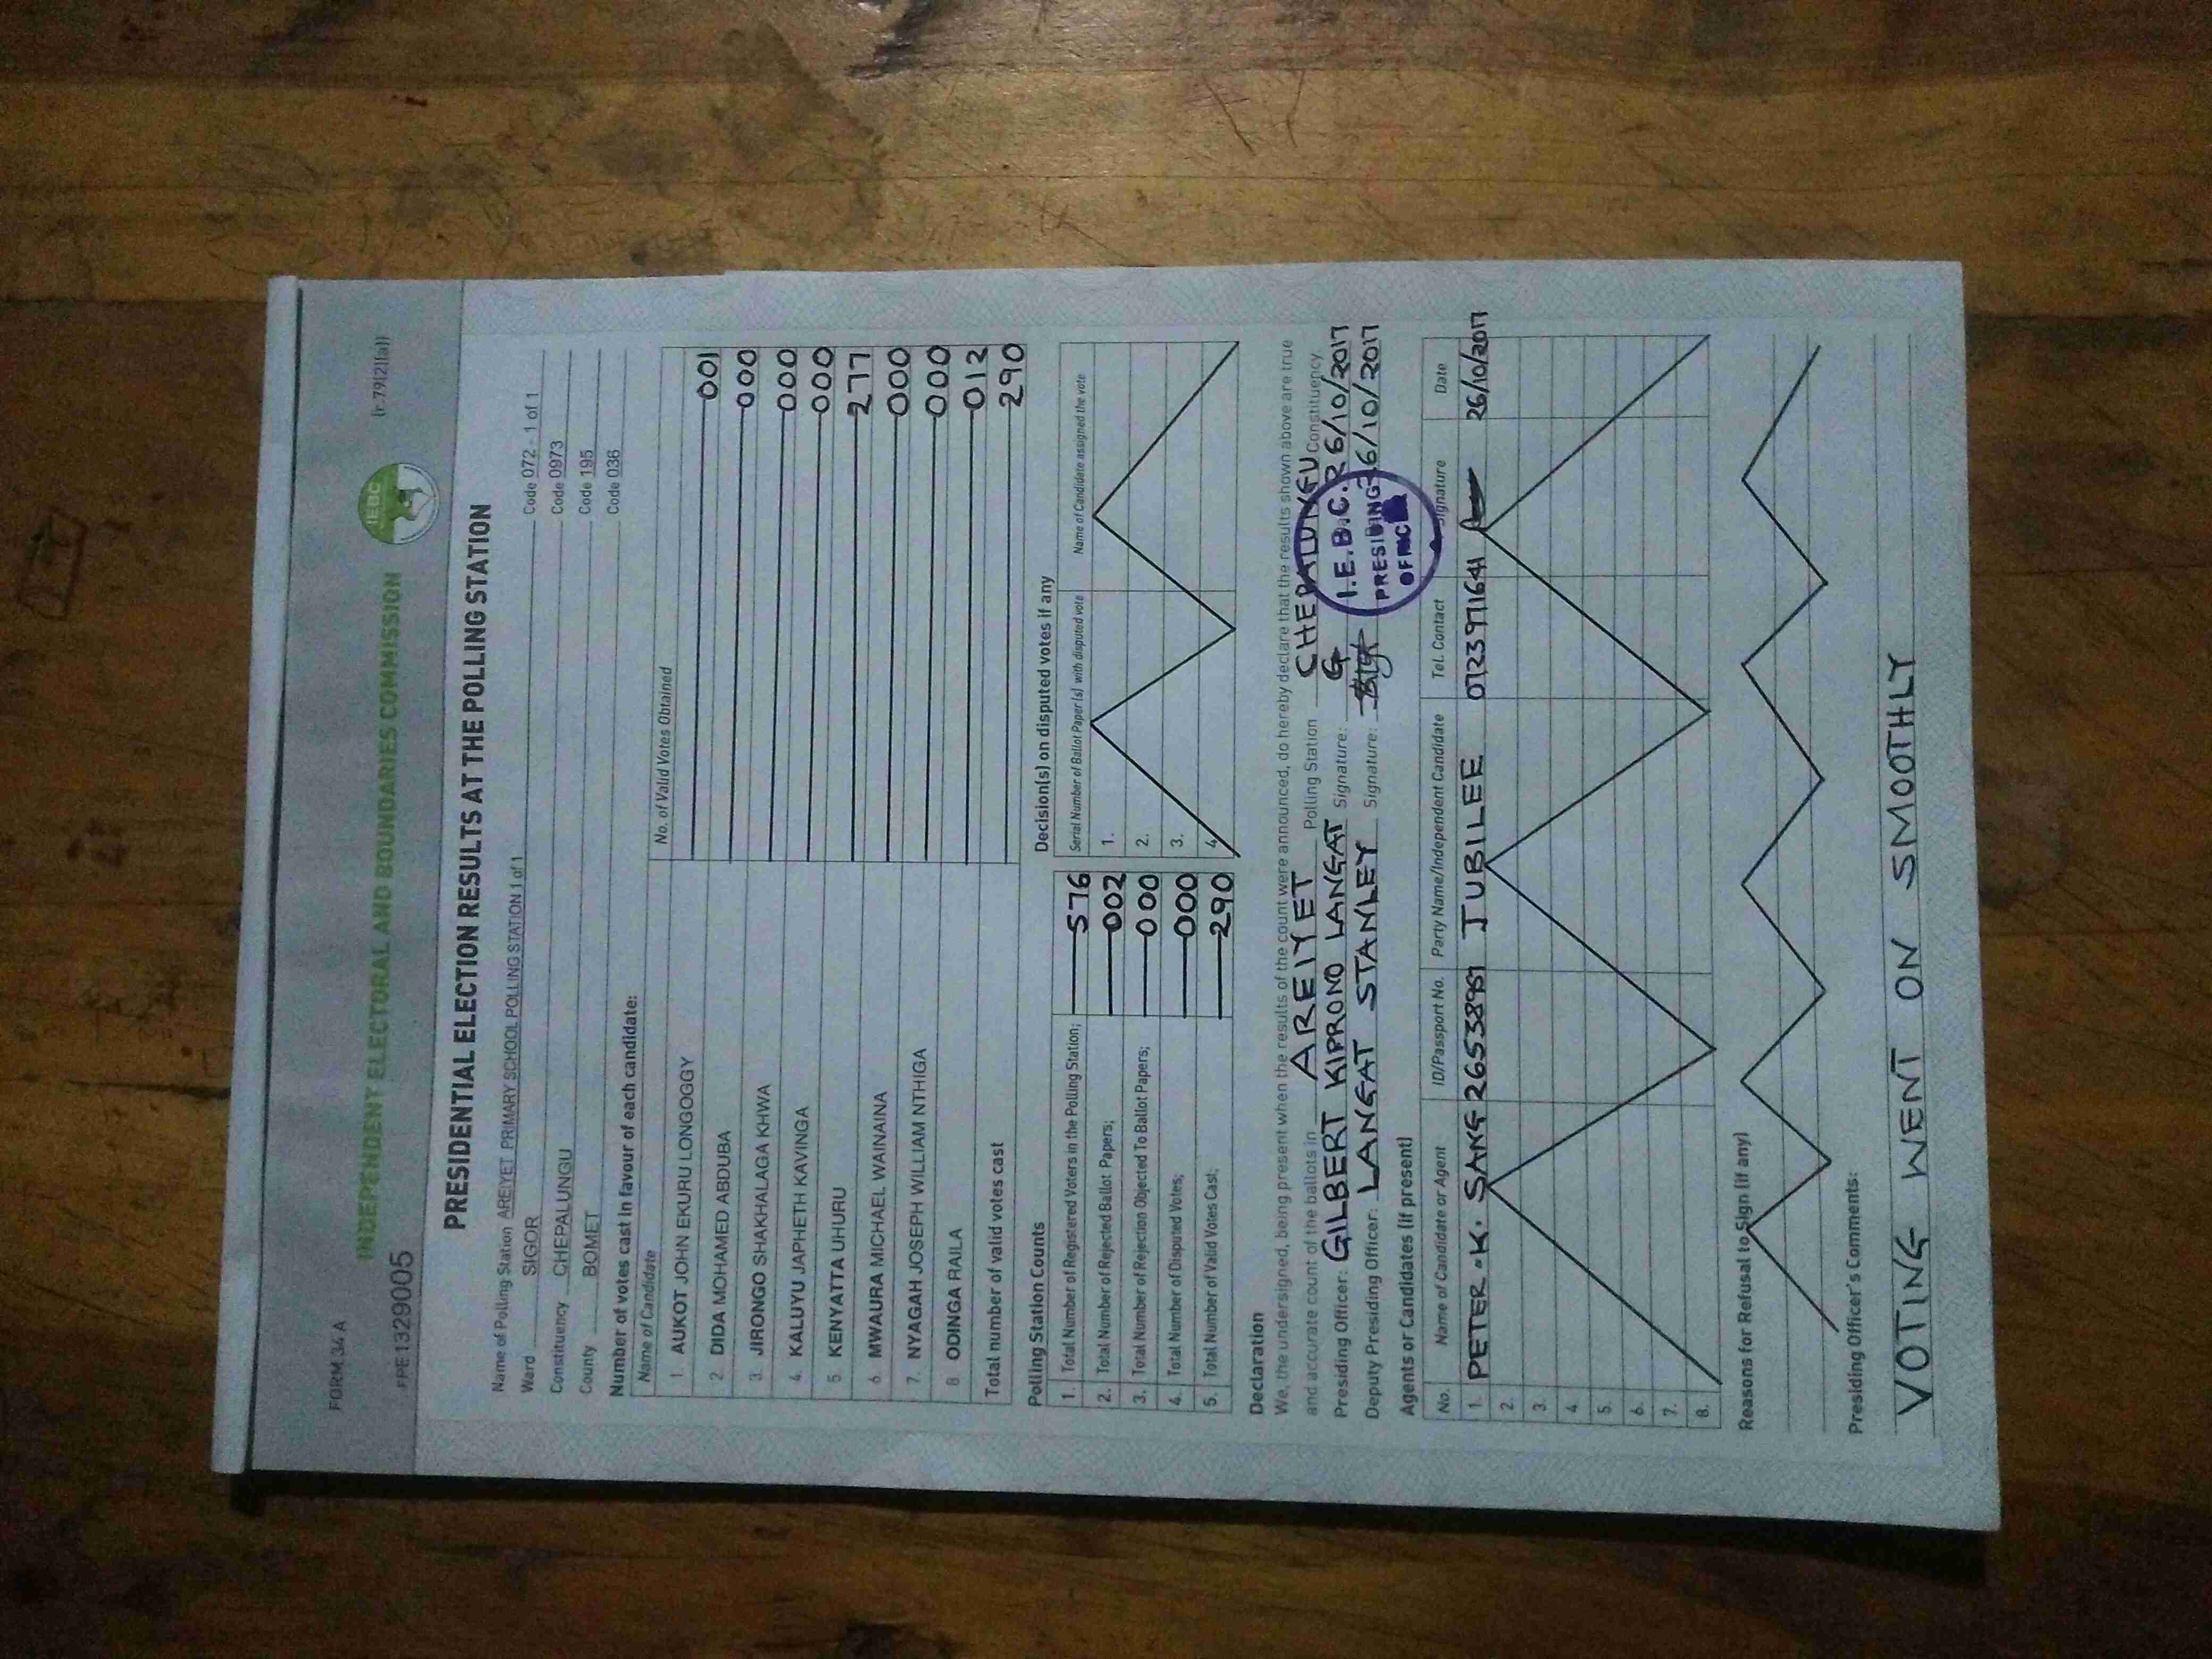 FORM 34 A
(r.79(2)(a))
FPE1329005
INDEPENDENT ELECTORAL AND BOUNDARIES COMMISSION
IEBC
PRESIDENTIAL ELECTION RESULTS AT THE POLLING STATION
Name of Polling Station AREIYET PRIMARY SCHOOL POLLING STATION 1 of 1 Code 072 - 1 of 1
Ward SIGOR Code 0973
Constituency CHEPALUNGU Code 195
County BOMET Code 036
Number of votes cast in favour of each candidate:
Name of Candidate No. of Valid Votes Obtained
1 AUKOT JOHN EKURU LONGOGGY 001
2. DIDA MOHAMED ABDUBA 000
3. JIRONGO SHAKHALAGA KHWA 000
4. KALUYU JAPHETH KAVINGA 000
5 KENYATTA UHURU 277
6 MWAURA MICHAEL WAINAINA 000
7. NYAGAH JOSEPH WILLIAM NTHIGA 000
8 ODINGA RAILA 012
Total number of valid votes cast 290
Polling Station Counts
1. Total Number of Registered Voters in the Polling Station; 576
2. Total Number of Rejected Ballot Papers; 002
3. Total Number of Rejection Objected To Ballot Papers; 000
4. Total Number of Disputed Votes; 000
5. Total Number of Valid Votes Cast; 290
Decision(s) on disputed votes if any
Serial Number of Ballot Paper (s) with disputed vote Name of Candidate assigned the vote
1.
2.
3.
4.
Declaration
We, the undersigned, being present when the results of the count were announced, do hereby declare that the results shown above are true
and accurate count of the ballots in AREIYET Polling Station CHEPALUNGU Constituency
Presiding Officer: GILBERT KIPRONO LANGAT Signature: 26/10/2017
Deputy Presiding Officer: LANGAT STANLEY Signature: 26/10/2017
I.E.B.C.
PRESIDING
OFFICER
Agents or Candidates (if present)
No. Name of Candidate or Agent ID/Passport No. Party Name/Independent Candidate Tel. Contact Signature Date
1. PETER K. SANG 26538987 JUBILEE 0723971641 26/10/2017
2.
3.
4
5.
6.
7.
8.
Reasons for Refusal to Sign (if any)
Presiding Officer's Comments:
VOTING WENT ON SMOOTHLY